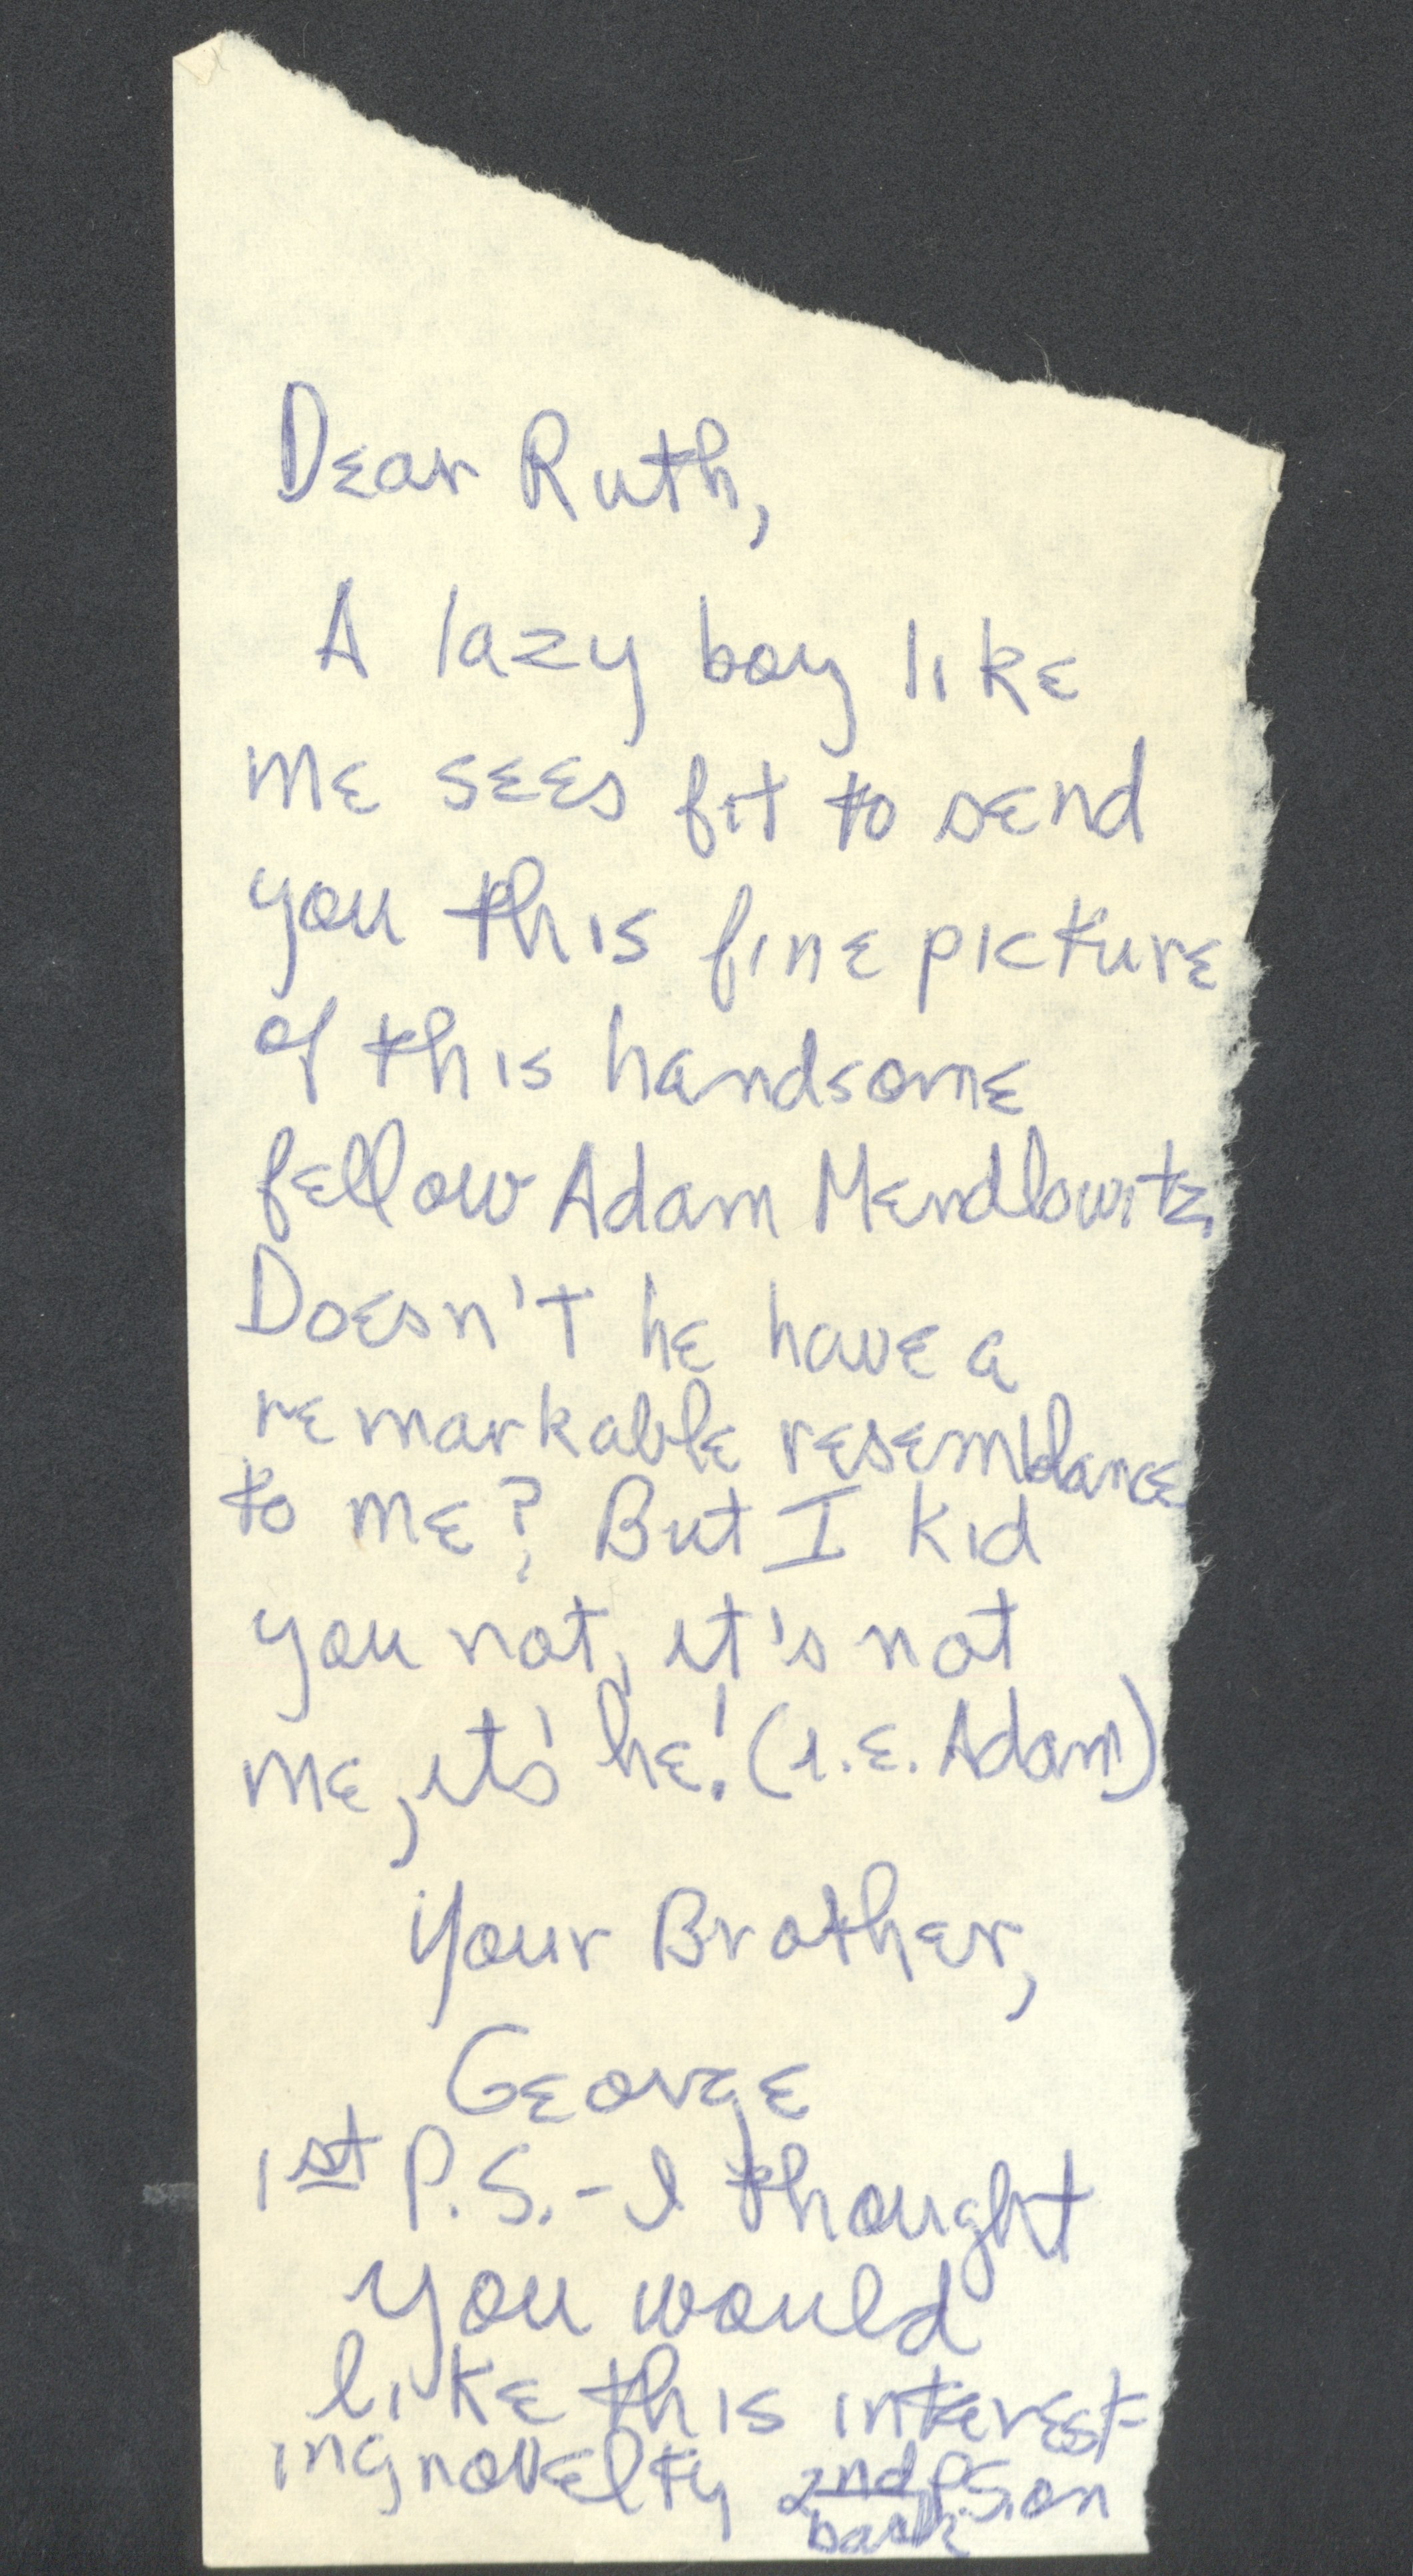 Dear Ruth,
A lazy boy like
me sees fit to send
you this fine picture
of this handsome
fellow Adam Mendlowitz.
Doesn't he have a
remarkable resemblance
to me? But I kid
you not, it's not
me, it's he! (i.e. Adam)
Your Brother,
George
1st P.S. - I thought
you would
like this interest-
ing novelty 2nd P.S. on
back